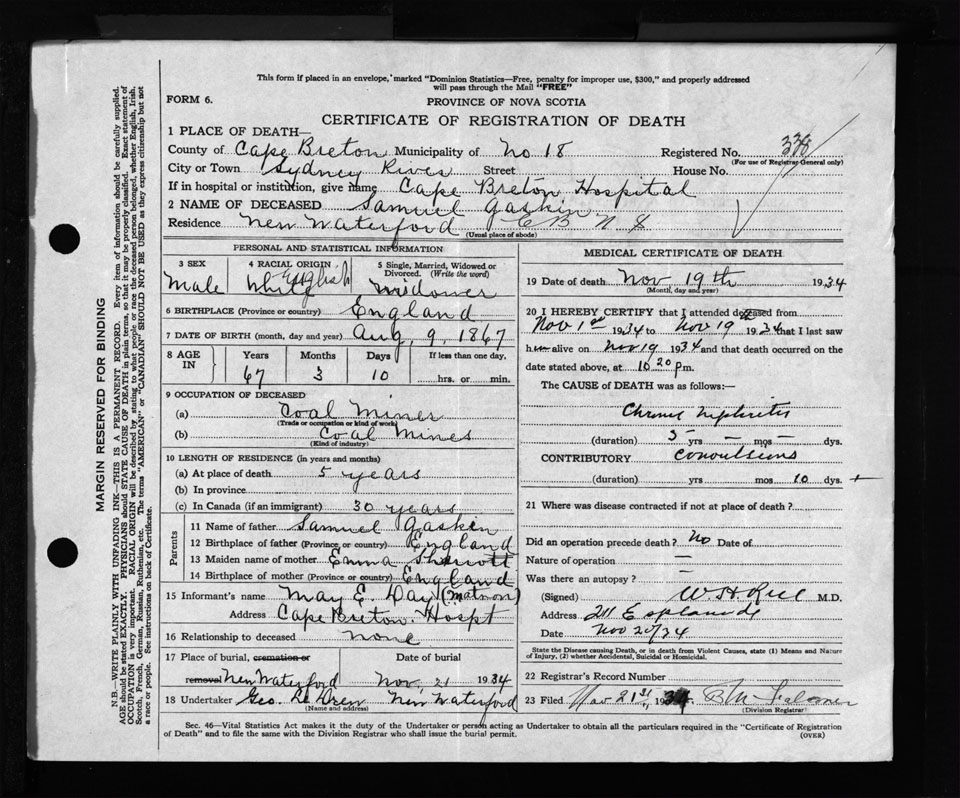 This form if placed in an envelope, marked "Dominion Statistics—Free, penalty for improper use, $300," and properly addressed
will pass through the Mail "FREE"
FORM 6.
PROVINCE OF NOVA SCOTIA
CERTIFICATE OF REGISTRATION OF DEATH
1 PLACE OF DEATH—
County of Cape Breton Municipality of No 18 Registered No. 338
(For use of Registrar General only)
City or Town Sydney River Street House No.
If in hospital or institution, give name Cape Breton Hospital
2 NAME OF DECEASED Samuel Gaskin
Residence New Waterford C B N S
(Usual place of abode)
PERSONAL AND STATISTICAL INFORMATION
3 SEX Male
4 RACIAL ORIGIN English White
5 Single, Married, Widowed or Divorced. (Write the word) Widower
6 BIRTHPLACE (Province or country) England
7 DATE OF BIRTH (month, day and year) Aug, 9, 1867
8 AGE IN Years Months Days If less than one day,
67 3 10 hrs. or min.
9 OCCUPATION OF DECEASED
(a) Coal Miner
(Trade or occupation or kind of work)
(b) Coal Mines
(Kind of industry)
10 LENGTH OF RESIDENCE (in years and months)
(a) At place of death 5 years
(b) In province
(c) In Canada (if an immigrant) 30 years
Parents
11 Name of father Samuel Gaskin
12 Birthplace of father (Province or country) England
13 Maiden name of mother Emma
14 Birthplace of mother (Province or country) England
15 Informant's name May E. Day (Matron)
Address Cape Breton. Hospt
16 Relationship to deceased none
17 Place of burial, cremation or removal New Waterford Date of burial Nov. 21 1934
18 Undertaker Geo. New Waterford
(Name and address)
MEDICAL CERTIFICATE OF DEATH
19 Date of death Nov 19th 1934
(Month, day and year)
20 I HEREBY CERTIFY that I attended deceased from
Nov 1st 1934 to Nov 19 1934 that I last saw
him alive on Nov 19 1934 and that death occurred on the
date stated above, at 10 20 p m.
The CAUSE of DEATH was as follows:—
Chronic Nephritis
(duration) 5 yrs — mos — dys.
CONTRIBUTORY Convulsions
(duration) yrs mos 10 dys. +
21 Where was disease contracted if not at place of death?
Did an operation precede death? No Date of
Nature of operation —
Was there an autopsy? —
(Signed) M.D.
Address 211 Esplanade
Date Nov 20/34
State the Disease causing Death, or in death from Violent Causes, state (1) Means and Nature
of Injury, (2) whether Accidental, Suicidal or Homicidal.
22 Registrar's Record Number
23 Filed Nov 21st, 1934
(Division Registrar)
Sec. 46—Vital Statistics Act makes it the duty of the Undertaker or person acting as Undertaker to obtain all the particulars required in the "Certificate of Registration
of Death" and to file the same with the Division Registrar who shall issue the burial permit.
(OVER)
MARGIN RESERVED FOR BINDING
N.B.—WRITE PLAINLY WITH UNFADING INK—THIS IS A PERMANENT RECORD. Every item of information should be carefully supplied.
AGE should be stated EXACTLY. PHYSICIANS should STATE CAUSE OF DEATH in plain terms, so that it may be properly classified. Exact statement of
OCCUPATION is very important. RACIAL ORIGIN will be described by stating to what people or race the deceased person belonged, whether English, Irish,
Scotch, French, German, Russian, Ruthenian, etc. The terms "AMERICAN" or "CANADIAN" SHOULD NOT BE USED as they express citizenship but not
a race or people. See instructions on back of Certificate.